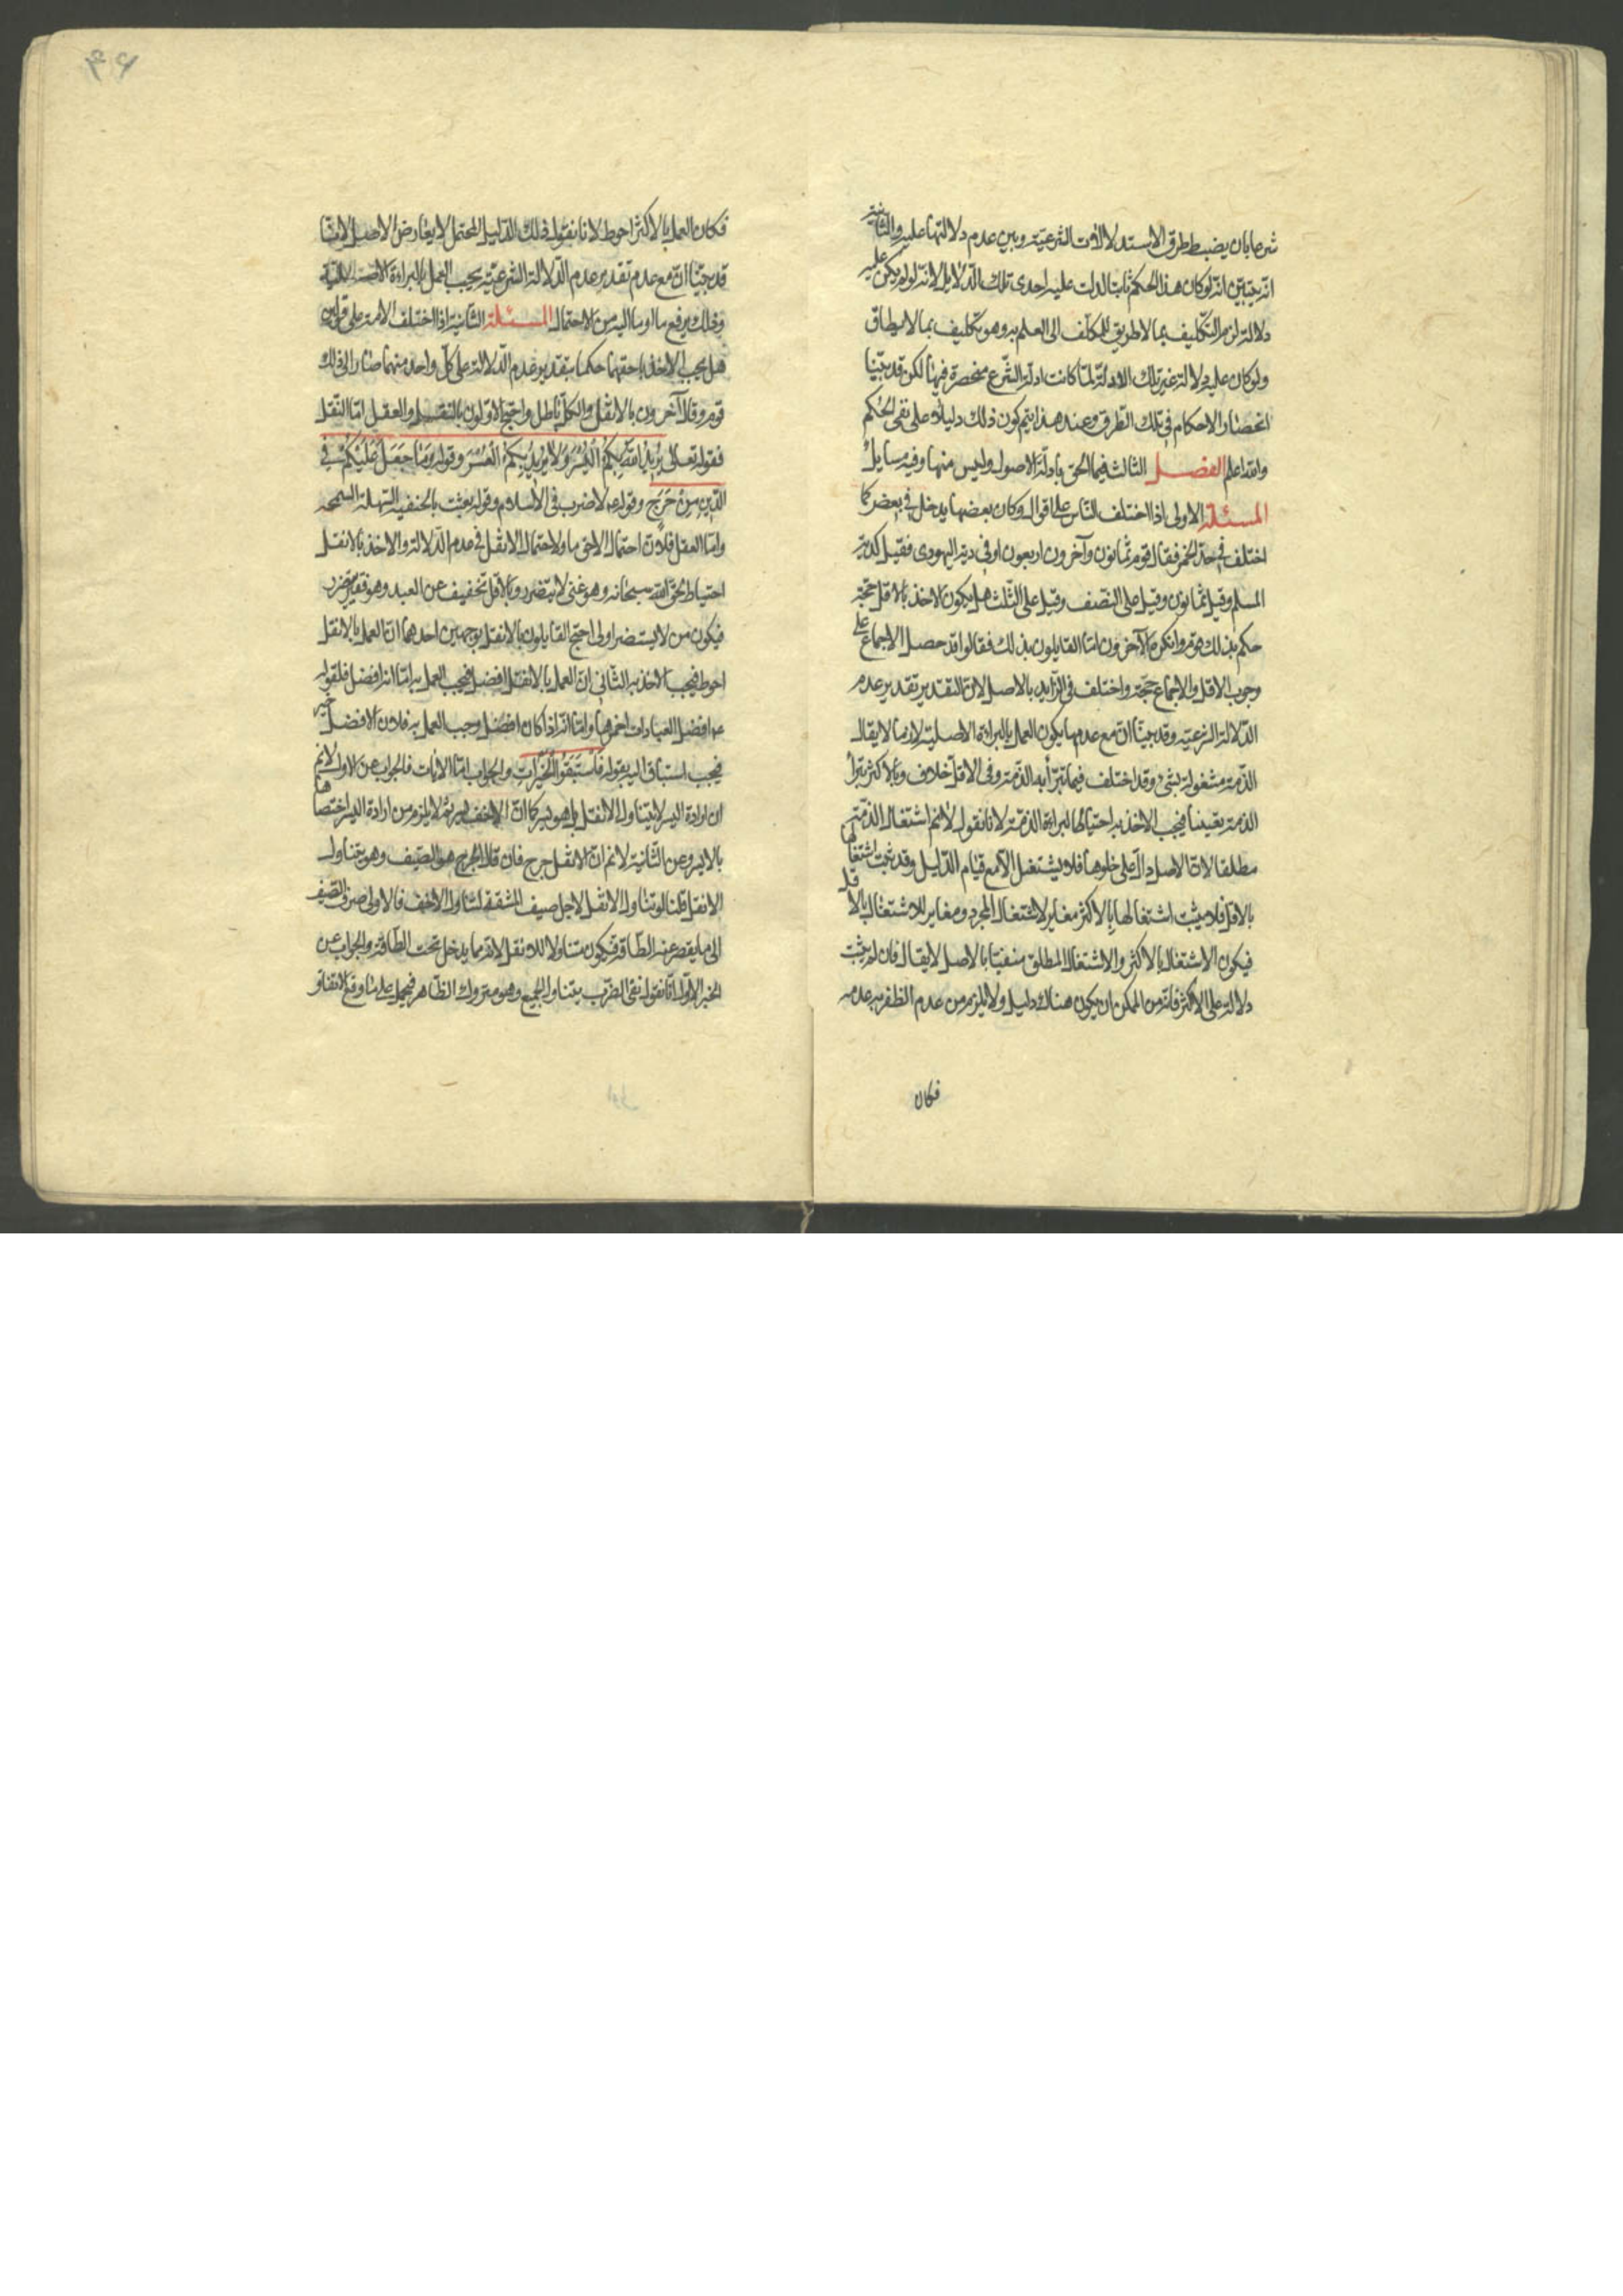 شرعا بان يضبط طرق الاستدلالات الشرعية وبين عدم دلالتها عليه والثانية
انه يتبين انه لو كان هذا الحكم ثابتا لدلت عليه احدى تلك الدلايل لانه لو لم يكن عليه
دلالة لزم التكليف بما لا طريق للمكلف الى العلم به وهو تكليف بما لا يطاق
ولو كان عليه دلالة غير تلك الادلة لما كانت ادلة الشرع منحصرة فيها لكن قد بينا
انحصار الاحكام في تلك الطرق وعند هذا يتم كون ذلك دليلا على نفى الحكم
والله اعلم الفصل الثالث فيما الحق بادلة الاصول وليس منها وفيه مسايل
المسئلة الاولى اذا اختلف الناس على اقوال وكان بعضها يدخل في بعض كما
اختلف في حد الخمر فقال قوم ثمانون وآخرون اربعون او في دية اليهودى فقيل كدية
المسلم وقيل ثمانون وقيل على النصف وقيل على الثلث هل يكون الاخذ بالاقل حجة
حكم بذلك قوم وانكره الآخرون اما القايلون بذلك فقالوا قد حصل الاجماع على
وجوب الاقل والاجماع حجة واختلف في الزايد بالاصل لان التقدير تقدير عدم
الدلالة الشرعية وقد بينا ان مع عدمها يكون العمل بالبراءة الاصلية لازما لا يقال
الذمة مشغولة بشئ وقد اختلف فيما تبرأ به الذمة وفى الاقل خلاف وبالاكثر تبرأ
الذمة يقينا فيجب الاخذ به احتياطا لبراءة الذمة لانا نقول لا نم اشتغال الذمة
مطلقا لان الاصل دال على خلوها فلا يشتغل الا مع قيام الدليل وقد ثبت اشتغالها
بالاقل فلا يثبت اشتغالها بالاكثر مغاير لاشتغال المجرد ومغاير للاشتغال بالاقل
فيكون الاشتغال بالاكثر والاشتغال المطلق منفيا بالاصل لا يقال فان لم يثبت
دلالة على الاكثر فانه من الممكن ان يكون هناك دليل ولا يلزم من عدم الظفر به عدمه
فكان
فكان العمل بالاكثر احوط لانا نقول ذلك الدليل المحتمل لا يعارض الاصل لانا
قد بينا ان مع عدم تقدير عدم الدلالة الشرعية يجب العمل بالبراءة الاصلية
وذلك يرفع ما اوما اليه من الاحتمال المسئلة الثانية اذا اختلف الامة على قولين
هل يجب الاخذ باخفهما حكما بتقدير عدم الدلالة على كل واحد منهما صار الى ذلك
قوم وقال آخرون بالاثقل والكل باطل واحتج الاولون بالنقل والعقل اما النقل
فقوله تعالى يُرِيدُ اللهُ بِكُمُ الْيُسْرَ وَلَا يُرِيدُ بِكُمُ الْعُسْرَ وقوله وَمَا جَعَلَ عَلَيْكُمْ فِي
الدِّينِ مِنْ حَرَجٍ وقوله ع لا ضرر في الاسلام وقوله بعثت بالحنفية السهلة السمحة
واما العقل فلان احتمال الاخف اولى احتمال الاثقل في عدم الدلالة والاخذ بالاثقل
احتياط لحق الله سبحانه وهو غنى لا يتضرر وبالاقل تخفيف عن العبد وهو فقير يتضرر
فيكون من لا يستضر اولى احتج القايلون بالاثقل بوجهين احدهما ان العمل بالاثقل
احوط فيجب الاخذ به الثاني ان العمل بالاثقل افضل فيجب العمل به اما انه افضل فلقوله
ع افضل العبادات احمزها واما انه اذا كان افضل وجب العمل به فلان الافضل خير
فيجب استباق اليه بقوله فَاسْتَبِقُوا الْخَيْرَاتِ والجواب اما الآيات فالجواب عن الاولى لا نم
ان ارادة اليسر لا يتناول الاثقل بل هو يسر كما ان الاخف يسر ثم لا يلزم من ارادة اليسر اختصاصها
بالايسر وعن الثانية لا نم ان الاثقل حرج فان قال الحرج هو الضيق وهو يتناول
الاثقل قلنا لو تناول الاثقل لاجل ضيق المشقة لتناول الاخف فالاولى صرف الضيق
الى ما يقصر عنه الطاقة فيكون متناولا للاثقل لانه مما يدخل تحت الطاقة والجواب عن
الخبر الاول انا نقول نفى الضرر يتناول الجميع وهو متروك الظاهر فيحمل على ما وقع الاتفاق